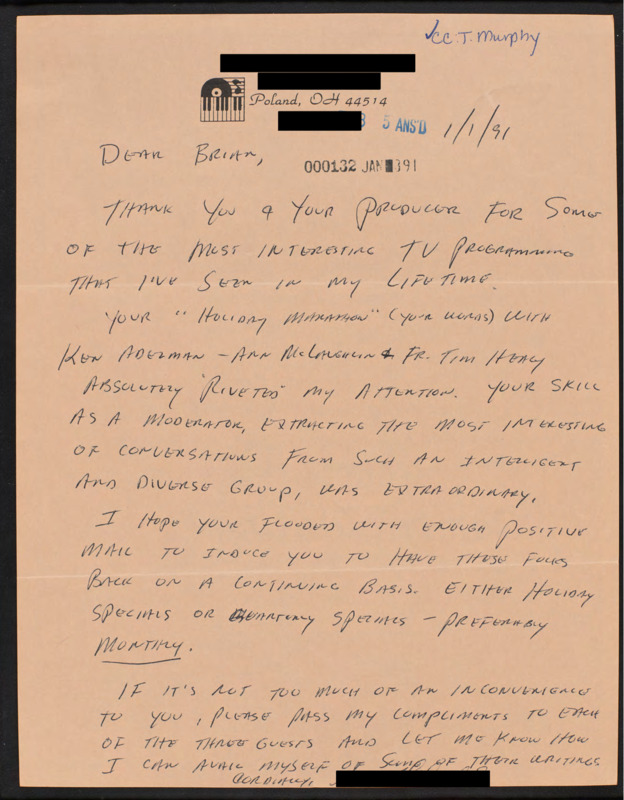 ✓cc. T. Murphy
Poland, OH 44514
5 ANS'D
1/1/91
DEAR BRIAN,
000132 JAN 391
THANK YOU & YOUR PRODUCER FOR SOME
OF THE MOST INTERESTING TV PROGRAMMING
THAT I'VE SEEN IN MY LIFETIME.
YOUR "HOLIDAY MARATHON" (YOUR WORDS) WITH
KEN ADELMAN - ANN McLAUGHLIN & FR. TIM HEALY
ABSOLUTELY "RIVETED" MY ATTENTION. YOUR SKILL
AS A MODERATOR, EXTRACTING THE MOST INTERESTING
OF CONVERSATIONS FROM SUCH AN INTELLIGENT
AND DIVERSE GROUP, WAS EXTRAORDINARY.
I HOPE YOUR FLOODED WITH ENOUGH POSITIVE
MAIL TO INDUCE YOU TO HAVE THESE FOLKS
BACK ON A CONTINUING BASIS. EITHER HOLIDAY
SPECIALS OR QUARTERLY SPECIALS - PREFERABLY
MONTHLY.
IF IT'S NOT TOO MUCH OF AN INCONVENIENCE
TO YOU, PLEASE PASS MY COMPLIMENTS TO EACH
OF THE THREE GUESTS AND LET ME KNOW HOW
I CAN AVAIL MYSELF OF SOME OF THEIR WRITINGS
CORDIALLY,